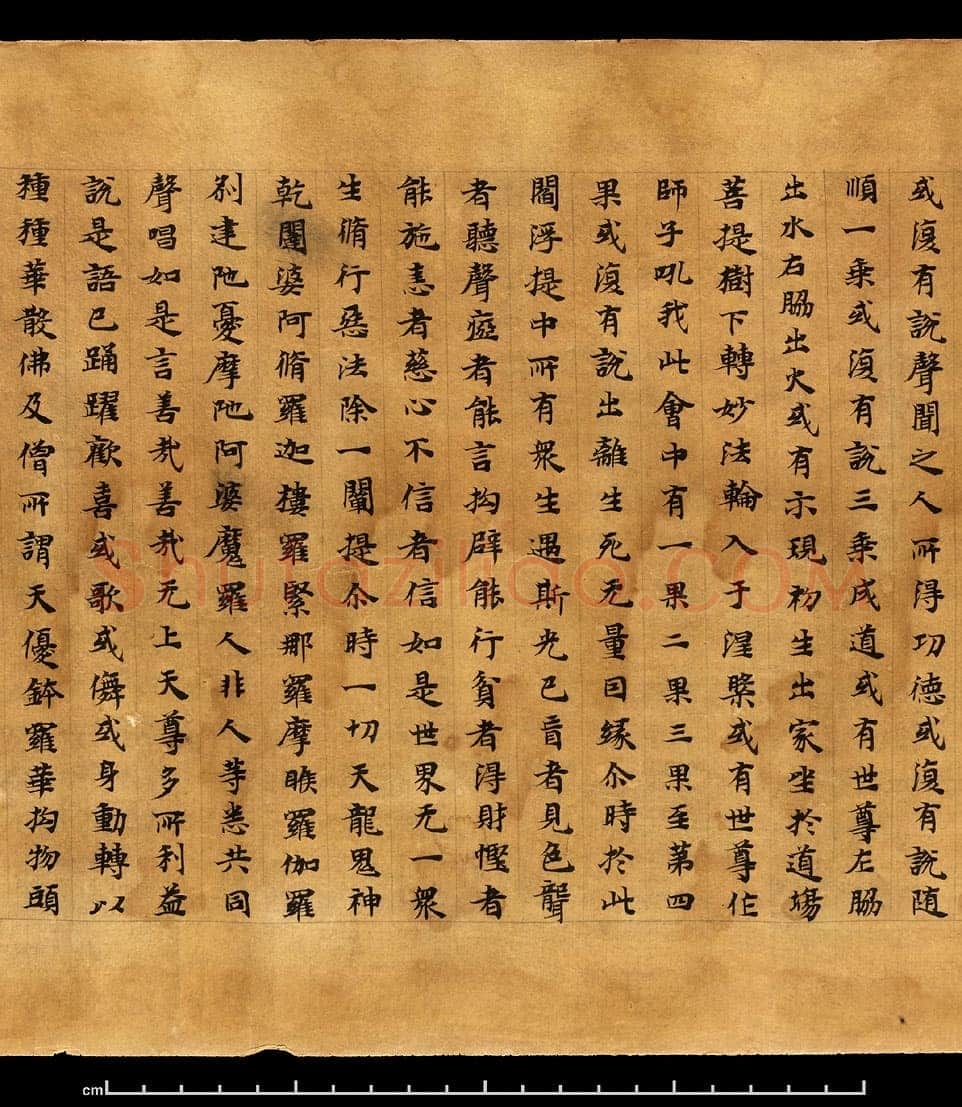 或復有說聲聞之人所得功德或復有說随
順一乗或復有說三乗成道或有世尊左脇
出水右脇出火或有示現初生出家坐於道場
菩提樹下轉妙法輪入于涅槃或有世尊作
師子吼我此會中有一果二果三果至第四
果或復有說出離生死无量因縁尒時於此
閻浮提中所有衆生遇斯光已盲者見色聾
者聽聲瘂者能言拘躃能行貧者得財慳者
能施恚者慈心不信者信如是世界无一衆
生脩行惡法除一闡提尒時一切天龍鬼神
乾闥婆阿脩羅迦樓羅緊那羅摩睺羅伽羅
剎建陁憂摩陁阿婆魔羅人非人等悉共同
聲唱如是言善哉善哉无上天尊多所利益
說是語已踊躍歡喜或歌或儛或身動轉以
種種華散佛及僧所謂天優鉢羅華拘物頭
Shufaziliao.COM
cm